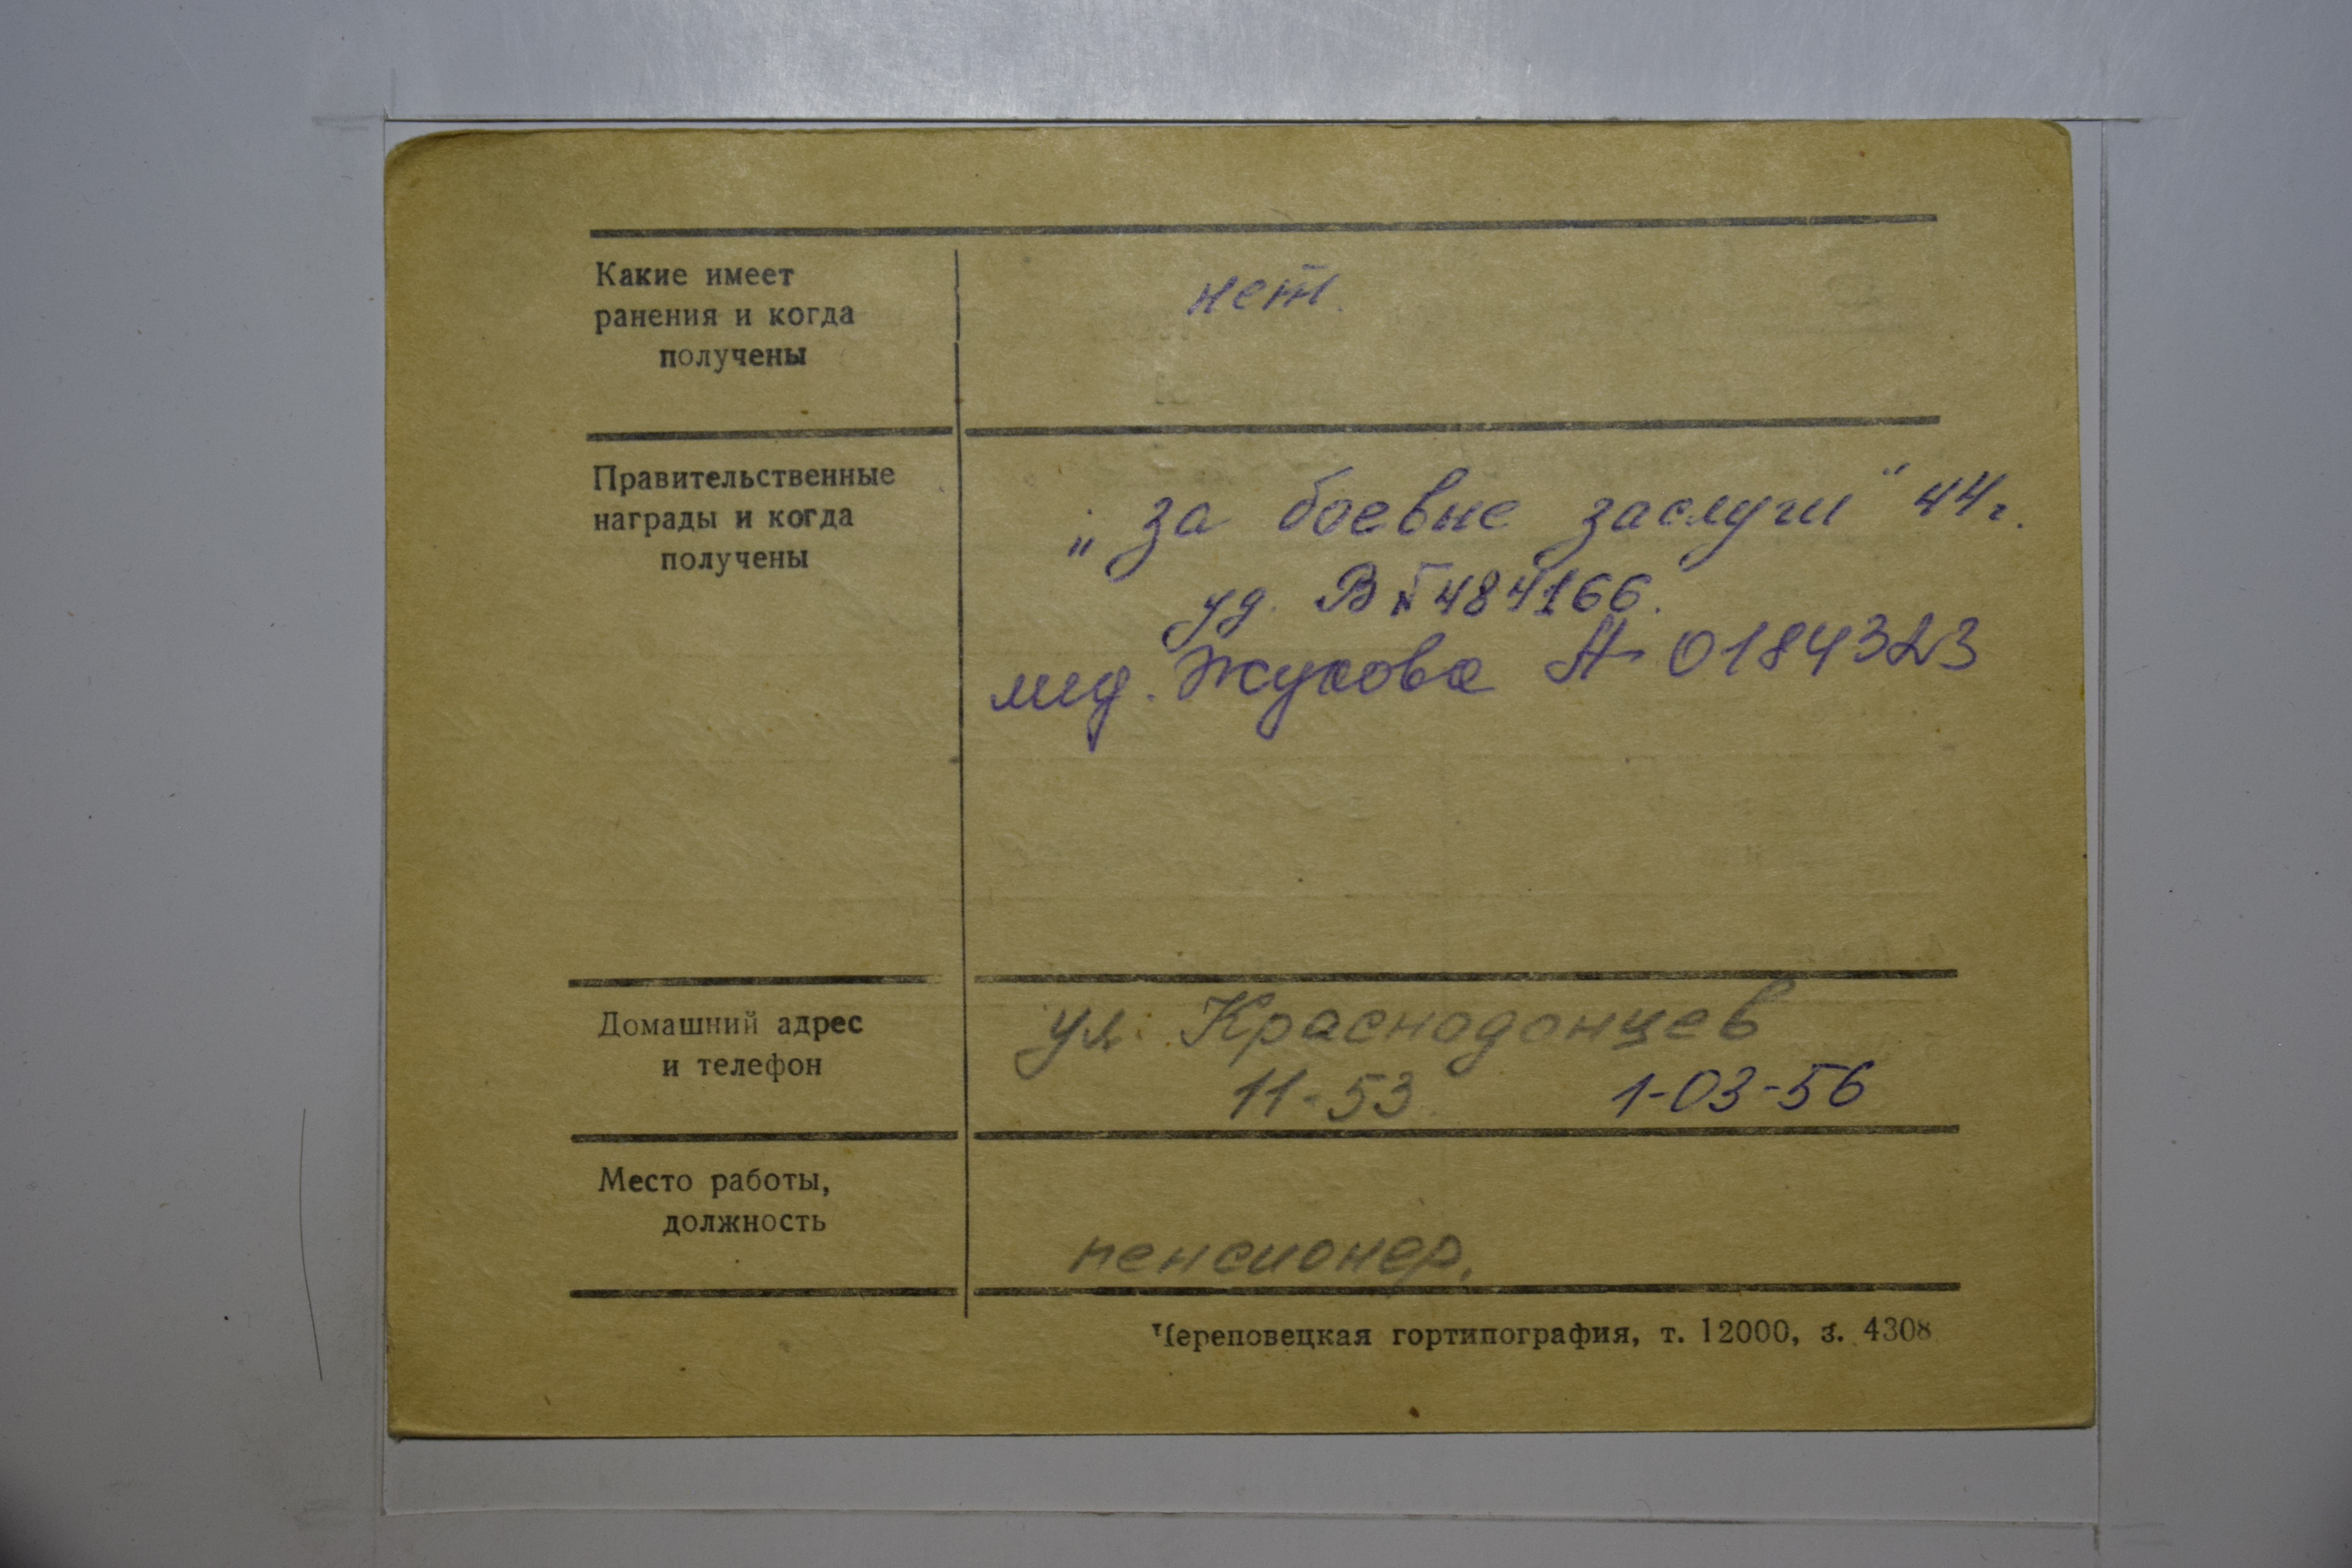 Какие имеет
ранения и когда
получены
нет.
Правительственные
награды и когда
получены
„за боевые заслуги" 44г.
уд. В № 484166.
мед. Жукова А 0184323
Домашний адрес
и телефон
ул. Краснодонцев
11-53 1-03-56
Место работы,
должность
пенсионер.
Череповецкая гортипография, т. 12000, з. 4308